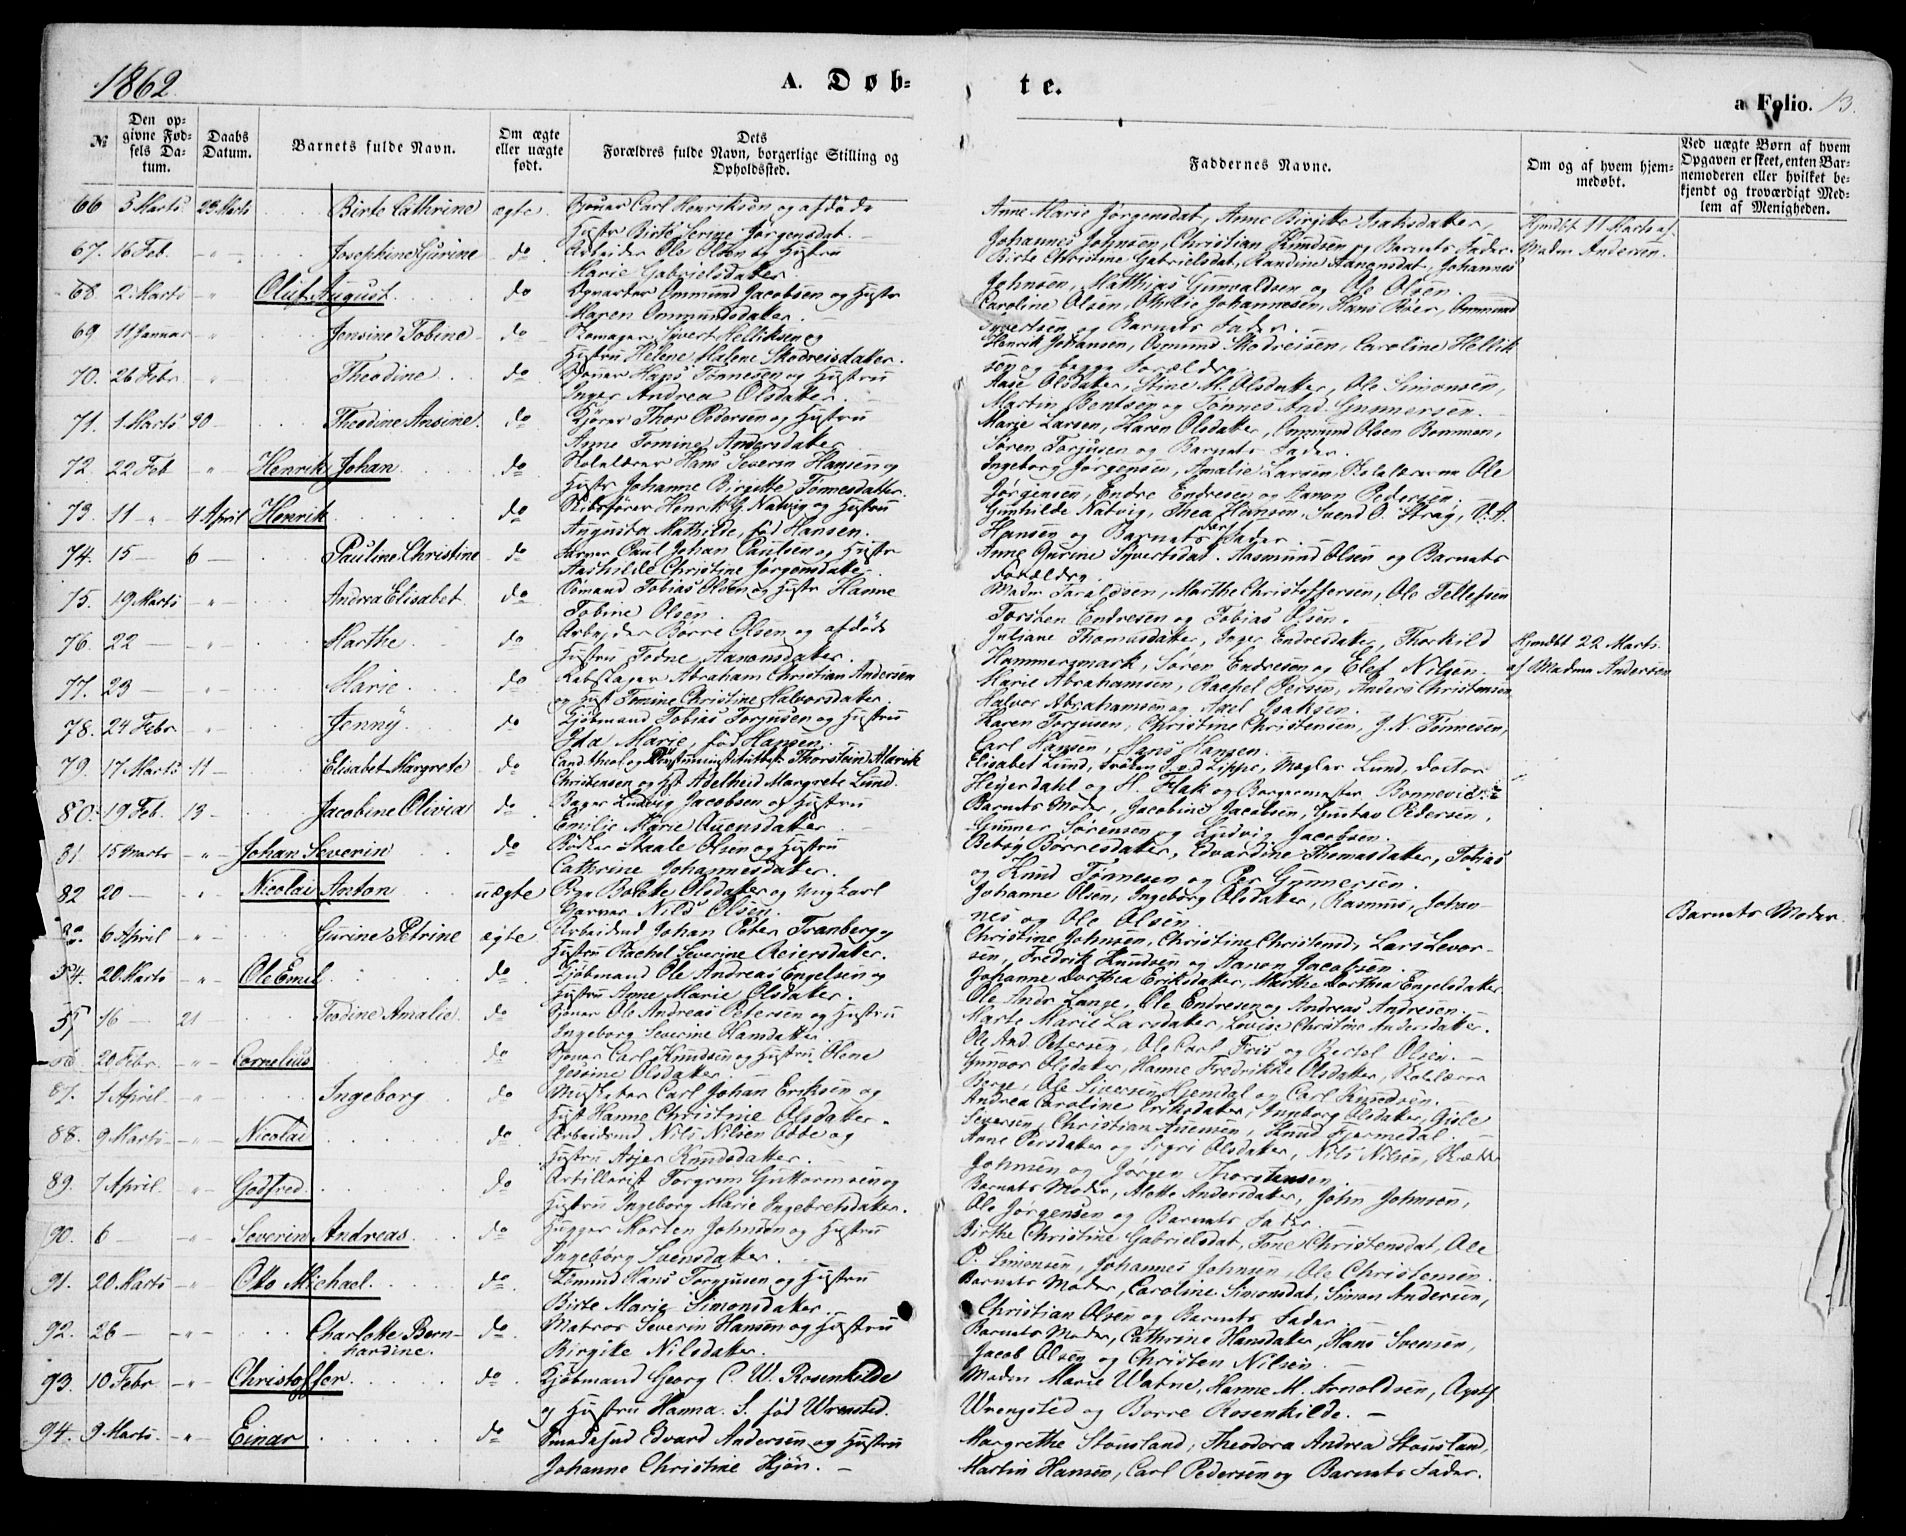 1862
A. Døb-
te.
a Folio. 13.
№
Den op-
givne Fød-
sels Da-
tum.
Daabs
Datum.
Barnets fulde Navn.
Om ægte
eller uægte
født.
Dets
Forældres fulde Navn, borgerlige Stilling og
Opholdssted.
Faddernes Navne.
Om og af hvem hjem-
medøbt.
Ved uægte Børn af hvem
Opgaven er skeet, enten Bar-
nemoderen eller hvilket be-
kjendt og troværdigt Med-
lem af Menigheden.
66 5 Marts 23 Marts Birte Cathrine ægte. Carl Henriksen og afdøde
Hustr Birte Serine Jørgensdat.
Anne Marie Jørgensdat, Anne Birgitte Isaksdatter,
Johannes Johnsen, Christian Knudsen og Barnets Fader.
Hjmdbt 11 Marts af
Madm Andersen.
67. 16 Feb. - " - Josephine Gurine do Arbeider Ole Olsen og Hustru
Marie Gabrielsdatter.
Birte Christine Gabrielsdat, Randine Aanonsdat, Johannes
Johnsen, Matthias Gunvaldsen og Ole Olsen.
68. 2 Marts " Oluf August do Ommund Jacobsen og Hustr
Maren Ommundsdatter.
Caroline Olsen, Othilie Johannesen, Hans Røer, Ommund
Syvertsen og Barnets Fader.
69 11 Januar " Jensine Tobine do Skomager Syvert Helliksen og
Hustru Helene Malene Skodreisdatter.
Henrik Johansen, Osmund Skodreisen, Caroline Hellik
sen og begge Forældre.
70. 26 Febr. - " - Theodine do Hans Tønnesen og Hustru
Inger Andrea Olsdatter.
Aase Olsdatter, Stine M. Olsdatter, Ole Simonsen,
Martin Bentsen og Tønnes And. Gunnersen.
71. 1 Marts 30 - Theodine Ansine. do Kjører Thor Pedersen og Hustru
Anne Tomine Andersdatter
Marie Larsen, Karen Olsdatter, Ommund Olsen Bommen,
Søren Torjusen og Barnets Fader.
72. 22 Feb " Henrik Johan do Skolelærer Hans Severin Hansen og
Hustr Johanne Birgitte Tønnesdatter.
Ingeborg Jørgensen, Amalie Larsen, Skolelærerne Ole
Jørgensen, Endre Endresen og Aanon Pedersen.
73. 11 " 4 April Henrik do Skibsfører Henrik G. Natvig og Hustru
Augusta Mathilde, fød Hansen.
Gunhilde Natvig, Thea Hansen, Svend O. Stray, V. A.
Hansen og Barnets Fader
74. 15 - 6 - Pauline Christine do Paul Johan Paulsen og Hustr
Aashilde Christine Jørgensdatter.
Anne Gurine Syvertsdat. Aasmund Olsen og Barnets
Forældre.
75. 19 Marts " Andrea Elisabet do Sømand Tobias Olsen og Hustr Hanne
Tobine Olsen.
Madm Taraldsen, Marthe Christoffersen, Ole Tellefsen
Torsten Endresen og Tobias Olsen.
76. 22 - - " - Marthe do Arbejder Børre Olsen og afdøde
Hustru Todne Aanonsdatter.
Juliane Thomasdatter, Inger Endresdatter, Thorkild
Hammersmark, Søren Endresen og Elef Nilsen.
Hjmdbt 22 Marts
af Madme Andersen
77. 23 - " - Marie do Rebslager Abraham Christian Andersen
og Hust Tomine Christine Halvorsdatter
Marie Abrahamsen, Rachel Persen, Anders Christensen
Halvor Abrahamsen og Axel Isaksen.
78. 24 Febr. " Jenny do Kjøbmand Tobias Torjusen og Hustru
Ida Marie, fød Hansen.
Karen Torjusen, Christine Christensen, J. N. Tønnesen,
Carl Hansen, Hans Hansen.
79. 17 Marts 11 - Elisabet Margrete do Cand. theol. Thorstein Alarik
Christensen og Hst Adelheid Margrete Lund.
Elisabet Lund, Frøken Lippe, Mægler Lund, Doctor
Heyerdahl og H. Flak og Borgermester Bonnevie.
80. 19 Feb. 13 - Jacobine Olivia do Bager Ludvig Jacobsen og Hustru
Emilie Marie Auensdatter
Barnets Moder, Jacobine Jacobsen, Gustav Pedersen,
Gunner Sørensen og Ludvig Jacobsen.
81 15 Marts - " - Johan Severin do Bødker Staale Olsen og Hustru
Cathrine Johannesdatter.
Betsy Børresdatter, Edvardine Thomasdatter, Tobias
og Knud Tønnesen og Per Gunnersen.
82 20 - " Nicolai Anton uægte Pige Olsdatter og Ungkarl
Garver Nils Olsen.
Johanne Olsen, Ingeborg Olsdatter, Rasmus, Johan-
nes og Ole Olsen.
Barnets Moder.
6 April - " - Gurine Petrine ægte Arbeidsmd Johan Peter Tranberg og
Hustru Rachel Severine Reiersdatter.
Christine Johnsen, Christine Christensd, Lars Levor-
sen, Fredrik Knudsen og Aanon Jacobsen.
84. 20 Marts - " - Ole Emil do Kjøbmand Ole Andreas Engelsen og
Hustru Anne Marie Olsdatter.
Johanne Dorthea Eriksdatter, Marthe Dorthea Engelsdatter
Ole Andr Lange, Ole Endresen og Andreas Andresen.
85 16 - 21 - Todine Amalie. do Ole Andreas Petersen og Hustru
Ingeborg Severine Hansdatter
Marte Marie Larsdatter, Lovise Christine Andersdatter.
Ole And Petersen, Ole Carl Friis og Bertel Olsen. -
20 Febr. - " - Cornelius do Carl Knudsen og Hustru Olene
Josine Olsdatter.
Gunvor Olsdatter, Hanne Fredrikke Olsdatter, Skolelærer
Berge, Ole Siversen Hjemdal og Carl Knudsen.
87. 1 April - " - Ingeborg do Musketer Carl Johan Eriksen og
Hust Hanne Christine Olsdatter.
Andrea Caroline Eriksdatter, Ingeborg Olsdatter, Gisle
Seversen, Christian Auensen, Knud Fjermedal.
88. 9 Marts - " - Nicolai do Arbeidsmd Nils Nilsen Odde og
Hustru Asjer Knudsdatter.
Anne Persdatter og Sigri Olsdatter, Nils Nilsen,
Johnsen og Jørgen Thorstensen.
89. 7 April. - " - Godfred do Artillerist Torgrim Guttormsen og
Hustru Ingeborg Marie Ingebretsdatter.
Barnets Moder, Alette Andersdatter, John Johnsen,
Ole Jørgensen og Barnets Fader.
90. 6 - - " - Severin Andreas do Hugger Morten Johnsen og Hustru
Ingeborg Svensdatter.
Birthe Christine Gabrielsdat, Tone Christensdat, Ole
P. Simonsen, Johannes Johnsen, Ole Christensen.
91. 20 Marts - " - Otto Michael do Tømmd Hans Torjusen og Hustru
Birte Marie Simonsdatter.
Barnets Moder, Caroline Simonsdat, Simon Andersen,
Christian Olsen og Barnets Fader.
92. 26 - - " - Charlotte Bern-
hardine.
do Matros Severin Hansen og Hustru
Birgitte Nilsdatter.
Barnets Moder, Cathrine Hansdatter, Hans Svensen,
Jacob Olsen og Christen Nilsen.
93. 10 Febr - " - Christoffer do Kjøbmand Georg C. W. Rosenkilde
og Hustru Hanna. S. fød Wrensted.
Madm Marie Watne, Hanne M. Arnoldsen, Agath
Wrengsted og Børre Rosenkilde. -
94. 9 Marts - " - Einar do Smedesvd Edvard Andersen og Hustru
Johanne Christine Hjøn. -
Margrethe Stousland, Theodora Andrea Stousland,
Martin Hansen, Carl Pedersen og Barnets Fader.